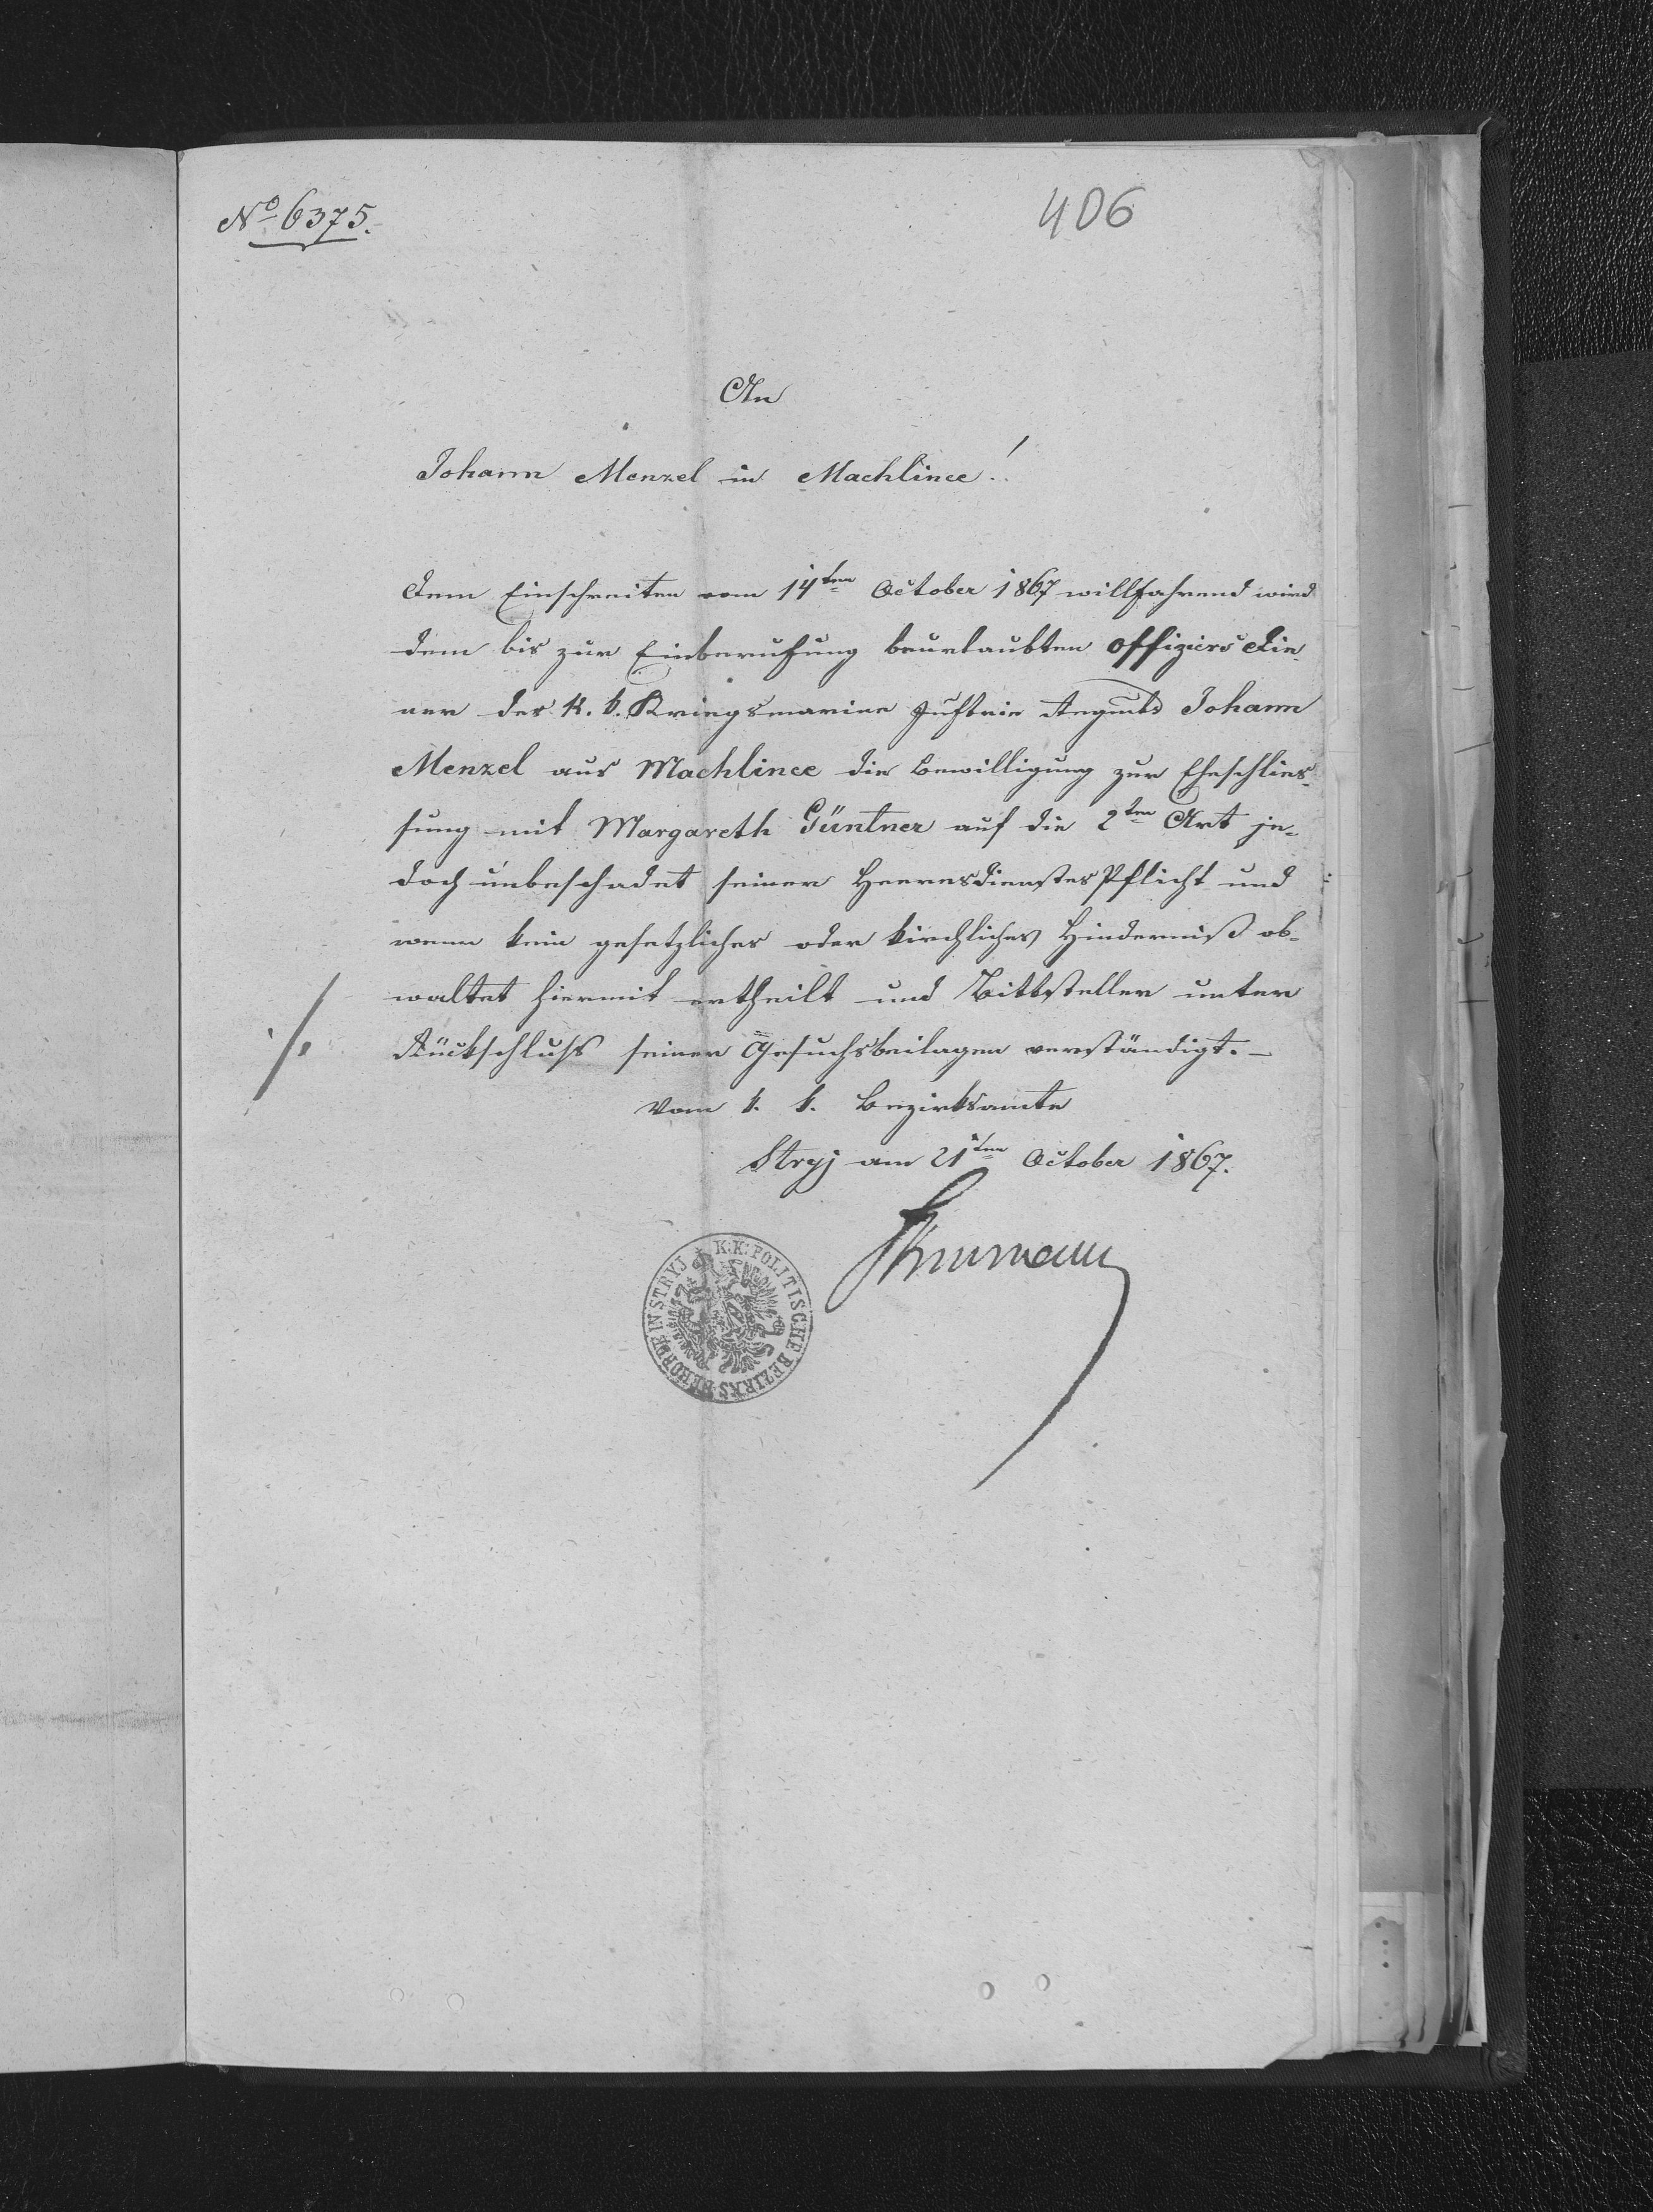 No 6375.
406
An
Johann Menzel in Machlince!
Dem Einschreiten vom 14ten October 1867 willfahrend wird
dem bis zur Einberufung beurlaubten Offiziers Die-
ner des k. k. Kriegsmarine Johann
Menzel aus Machlince die Bewilligung zur Eheschlies-
sung mit Margareth Güntner auf die 2te Art je-
doch unbeschadet seiner Heeresdienstes Pflicht und
wenn kein gesetzliches oder kirchliches Hinderniß ob-
waltet hiermit ertheilt und Bittsteller unter
·/. Rückschluss seiner Gesuchsbeilagen verständigt. –
Vom k. k. Bezirksamte
Stryj am 21ten October 1867.
K. K. POLITISCHE BEZIRKS BEHÖRDE IN STRYJ